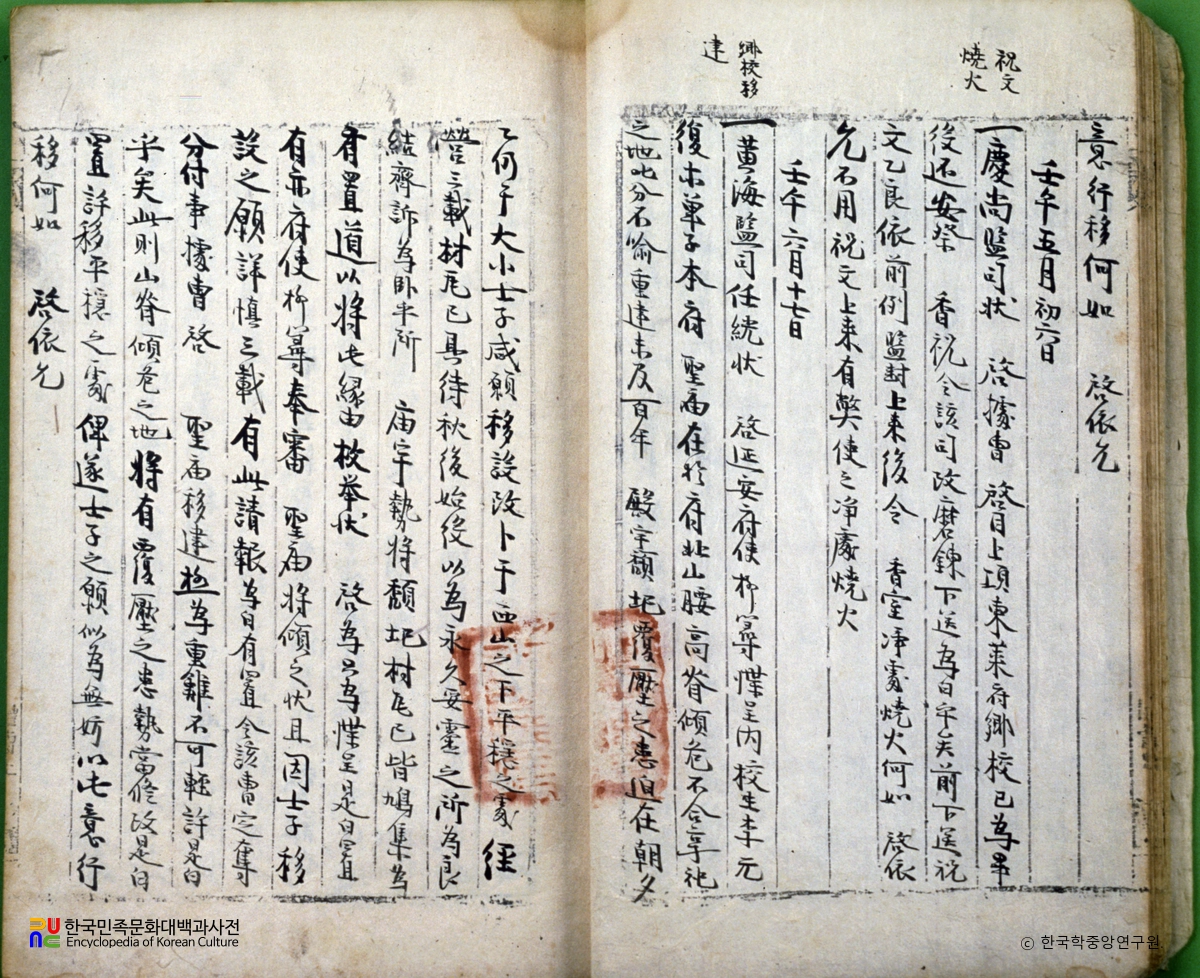 祝文
燒火
鄕校移
建
意行移何如 啓依允
壬午五月初六日
一慶尙監司狀 啓據曹 啓目上項東萊府鄕校已爲畢
後還安祭 香祝令該司改磨鍊下送爲白乎矣前下送祝
文乙良依前例監封上來後令 香室淨處燒火何如 啓依
允不用祝文上來有弊使之净處燒火
壬午六月十七日
一黃海監司任絖狀 啓延安府使柳 牒呈內校生李元
復木單子本府 聖廟在於府北山腰高脊傾危不合享祀
之地叱分不喩重建未及百年 殿宇頹圮覆壓之患迫在朝夕
乙何于大小士子咸願移設改卜于西山之下平穩之處 經
營三載材瓦已具待秋後始役以爲永久安靈之所爲良
結齊訴爲臥乎所 庙宇勢將頹圮材瓦已皆鳩集爲
有置道以將此緣由枚擧狀 啓爲只爲牒呈是白置
有亦府使柳 奉審 聖庙將傾之狀且因士子移
設之願詳愼三載有此請報爲白有置令該曹定奪
分付事據曹 啓 聖庙移建極爲重難不可輕許是白
乎矣此則山脊傾危之地將有覆壓之患勢當修改是白
置許移平穩之處俾遂士子之願似爲無妨以此意行
移何如 啓依允
한국민족문화대백과사전
Encyclopedia of Korean Culture
© 한국학중앙연구원